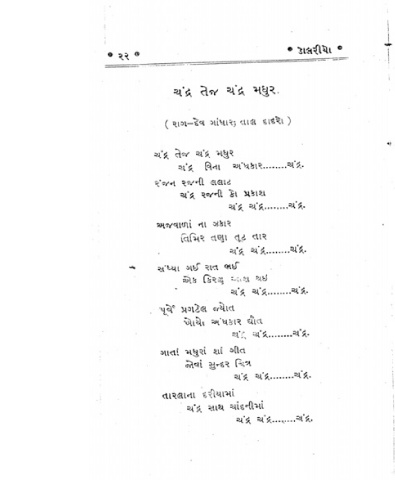 ૨૨
ડાલરીયો
ચંદ્ર તેજ ચંદ્ર મધુર.
(રાગ-દેવ ગાંધાર; તાલ દાદરો)
ચંદ્ર તેજ ચંદ્ર મધુર
ચંદ્ર વિના અંધકાર........ચંદ્ર.
રંજન રજની લલાટ
ચંદ્ર રજની કો પ્રકાશ
ચંદ્ર ચંદ્ર........ચંદ્ર.
અજવાળાં ના
તિમિર તણા તૂટ તાર
ચંદ્ર ચંદ્ર........ચંદ્ર.
સંધ્યા ગઈ રાત ભઈ
એક કિરણ થઈ
ચંદ્ર ચંદ્ર........ચંદ્ર.
પૂર્વે પ્રગટેલ જ્યોત
ખોયો અંધકાર
ચંદ્ર ચંદ્ર........ચંદ્ર.
ગાતાં મધુરાં શાં ગીત
એવાં સુન્દર ચિત્ર
ચંદ્ર ચંદ્ર........ચંદ્ર.
તારલાના દરીયામાં
ચંદ્ર સાથ ચાંદનીમાં
ચંદ્ર ચંદ્ર........ચંદ્ર.